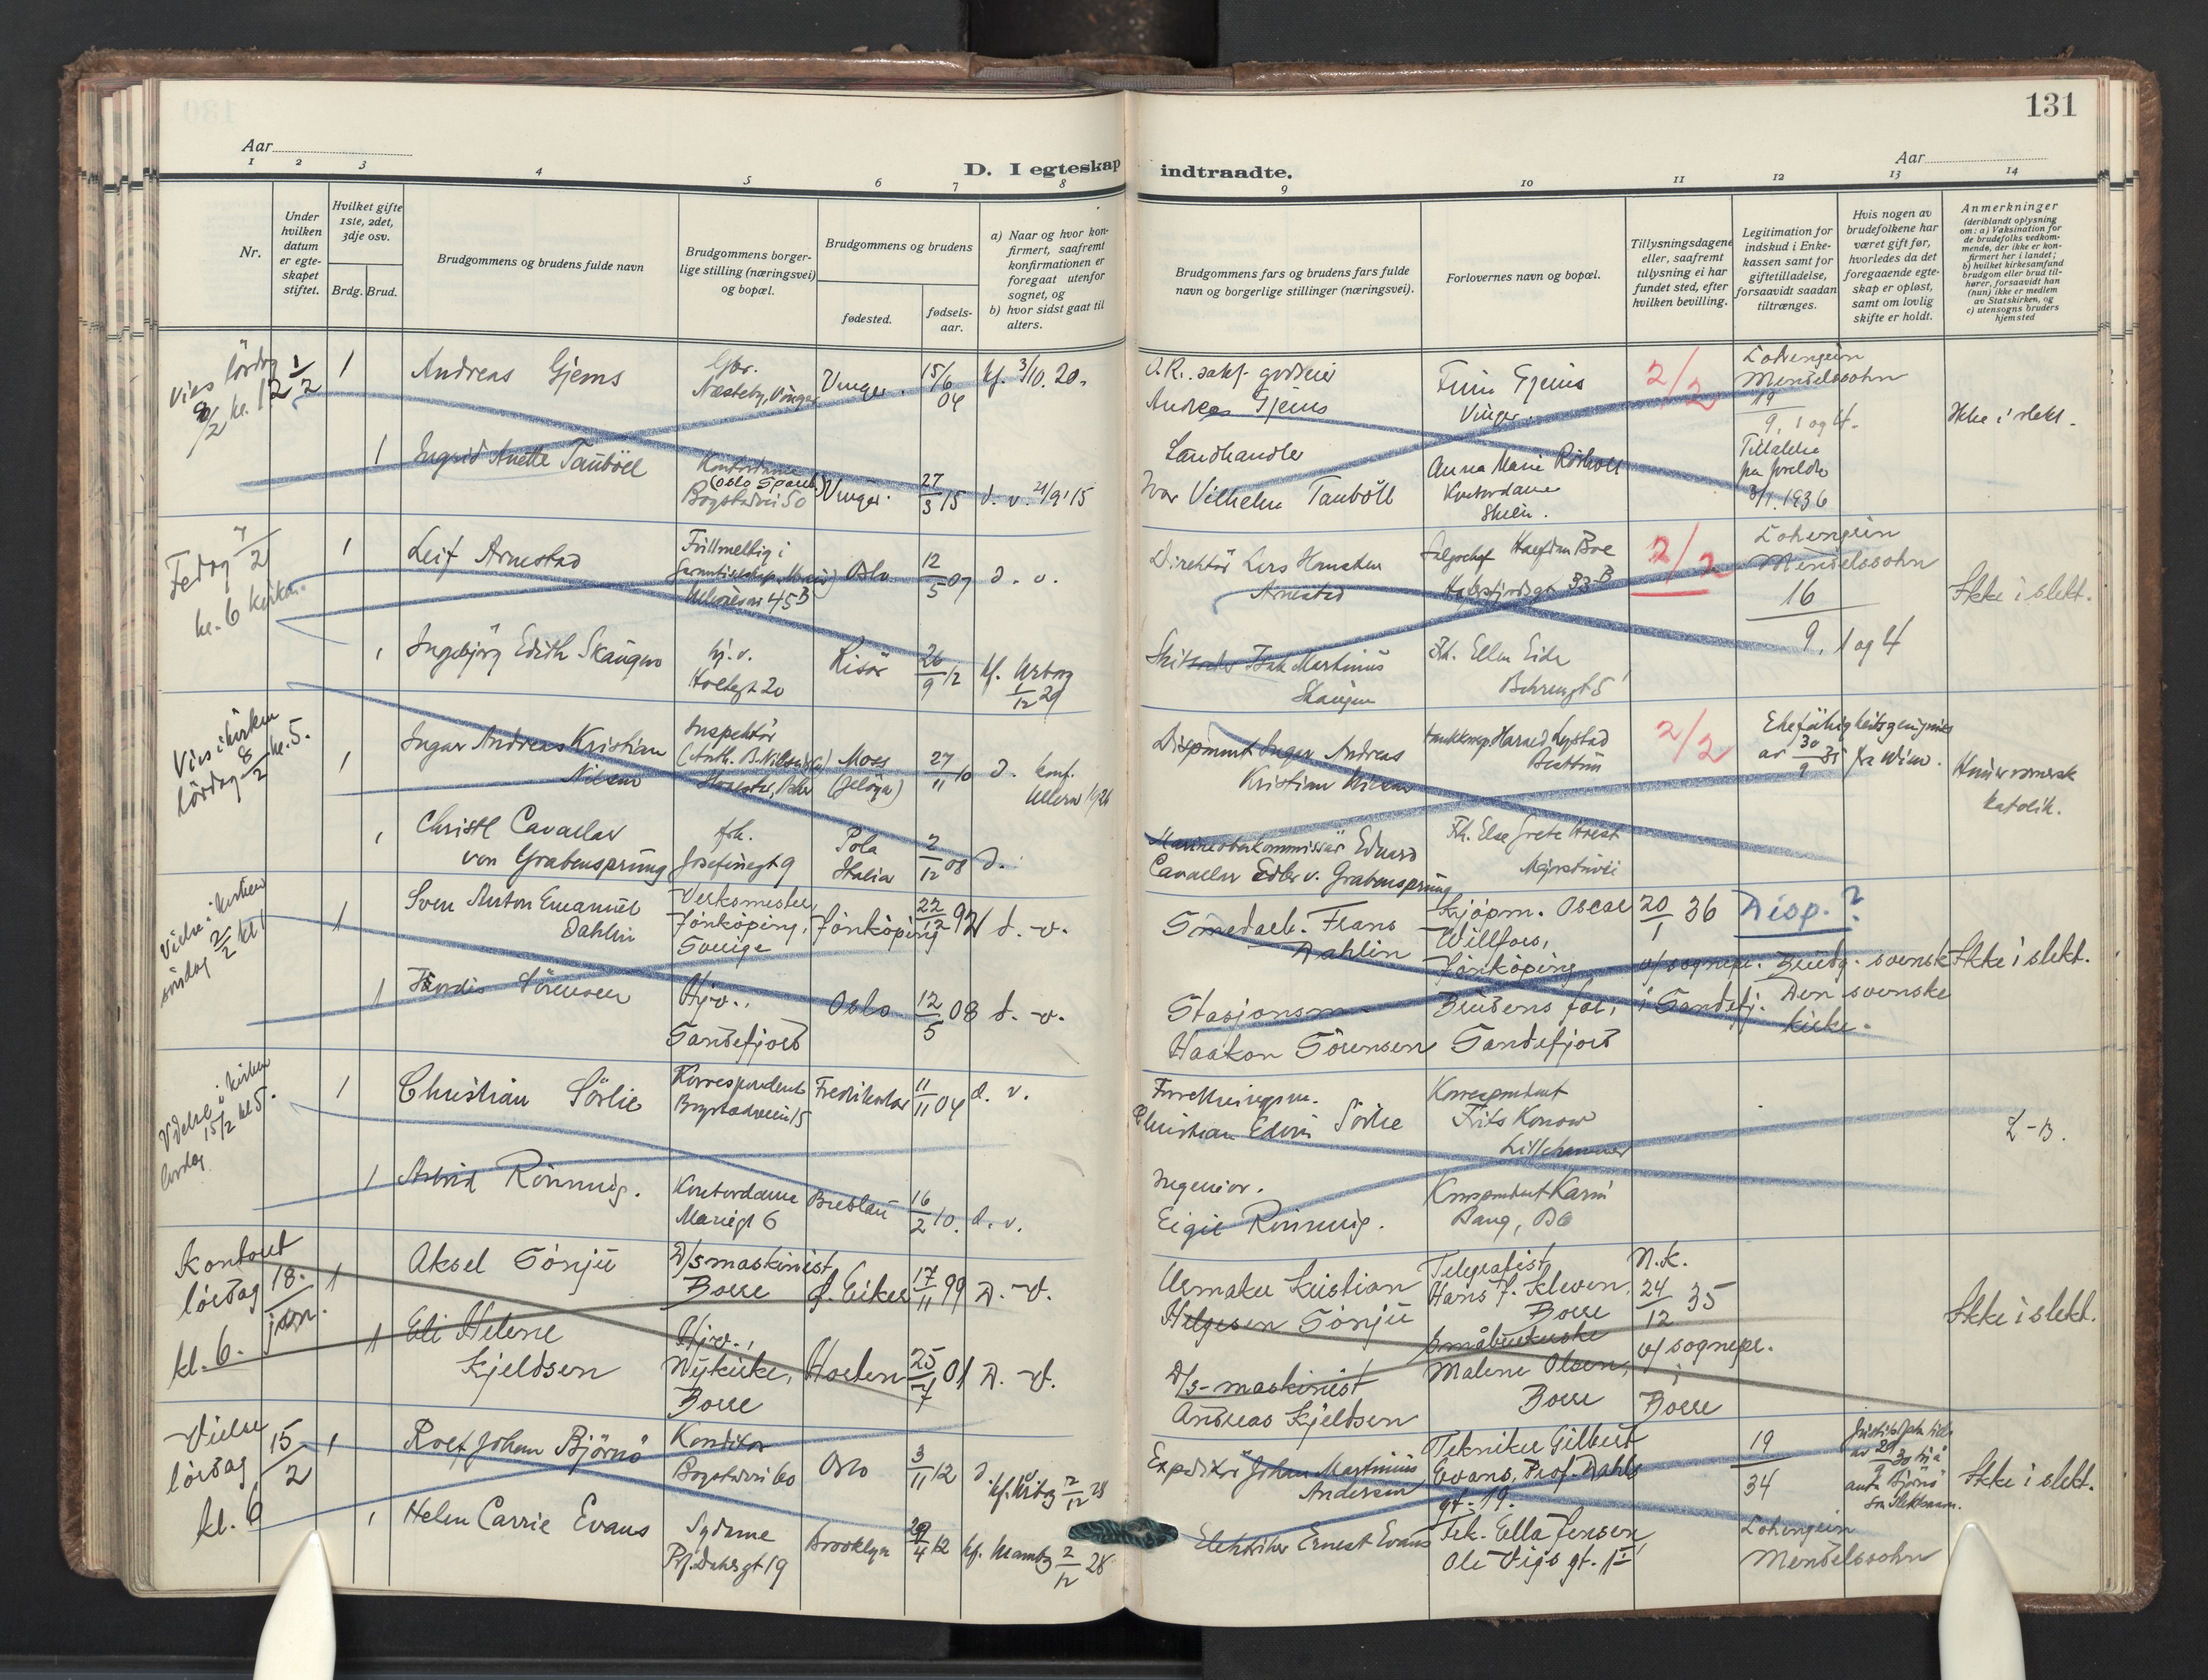 131
Aar
Aar
D. I egteskap indtraadte.
1 2 3 4 5 6 7 8 9 10 11 12 13 14
Nr.
Under hvilken datum er egte-skapet stiftet.
Hvilket gifte 1ste, 2det, 3dje osv.
Brdg. Brud.
Brudgommens og brudens fulde navn
Brudgommens borger-lige stilling (næringsvei) og bopæl.
Brudgommens og brudens
fødested.
fødsels-aar.
a) Naar og hvor kon-firmert, saafremt konfirmationen er foregaat utenfor sognet, og
b) hvor sidst gaat til alters.
Brudgommens fars og brudens fars fulde navn og borgerlige stillinger (næringsvei).
Forlovernes navn og bopæl.
Tillysningsdagene eller, saafremt tillysning ei har fundet sted, efter hvilken bevilling.
Legitimation for indskud i Enke-kassen samt for giftetilladelse, forsaavidt saadan tiltrænges.
Hvis nogen av brudefolkene har været gift før, hvorledes da det foregaaende egte-skap er opløst, samt om lovlig skifte er holdt.
Anmerkninger
(deriblandt oplysning om: a) Vaksination for de brudefolks vedkom-mende, der ikke er kon-firmert her i landet; b) hvilket kirkesamfund brudgom eller brud til-hører, forsaavidt han (hun) ikke er medlem av Statskirken, og c) utensogns bruders hjemsted
Vies lördag 8/2 kl. 12
1
Andreas Gjems
Næsteby, Vinger
Vinger.
15/6 04
kf. 3/10. 20.
Andreas Gjems
Gjems
Vinger.
2/2
Lohengrin
Mendelssohn
19
9, 1 og 4.
Ikke i slekt.
1
Ingrid Anette Tauböll
Kontordame
Bogstadvei 50
Vinger.
27/3 15
d. v. 21/9 15
Landhandler
Ivar Vilhelm Tauböll
Anna Marie
Kontordame
Skien.
Tillatelse
fra foreldre
3/1. 1936
Fredag 7/2
kl. 6 kirken.
1
Leif Arnestad
Fullmektig i
Ullevålsvei 45B
Oslo
12/5 07
d. v.
Direktör Lars
Arnestad
Halfdan Boe
33B
2/2
Lohengrin
Mendelssohn
16
9, 1 og 4
Ikke i slekt.
1
Ingebjörg Edith Skaugen
hj. v.
Holtegt 20
Risör
26/9 12
kf. Uranbg
1/12 29
Martinius
Skaugen
Frk. Ellen Eide
Behrensgt 5
Vies i kirken
lördag 8/2 kl. 5.
1
Ingar Andreas Kristian
Nilsen
Inspektör
Moss
(Jelöya)
27/11 10
d. konf.
Ullern
Disponent Ingar Andreas
Kristian Nilsen
Harald Lystad
Bestum
2/2
Ehefähigkeitszeugnis
av 30/9 35 fra Wien.
Hun er romersk
katolik.
1
Christl Cavallar
von Grabensprung
frk.
Josefinegt 9
Pola
Italia
2/12 08
d.
Marineoberkommissär Eduard
Cavallar Edler v. Grabensprung
Frk. Else Grete
Majorstuvei
Vielse i kirken
söndag 2/2 kl 1
1
Sven Anton Emanuel
Dahlin
Verksmester,
Jönköping,
Sverige
Jönköping
22/12
d. v.
Smedarb. Frans
Dahlin
Kjöpm. Oscar
Willfors,
Jönköping
20/1 36
v/ sognepr.
i Sandefj.
Disp. ?
Brudg. svensk
Den svenske
kirke.
Ikke i slekt.
1
Hjördis Sörensen
Hjv.,
Sandefjord
Oslo
12/5 08
d. v.
Stasjonsm.
Haakon Sörensen
Brudens far,
Sandefjord
Vielse i kirken
15/2 kl 5.
lördag
1
Christian Sörlie
Korrespondent
Bogstadveien 15
Fredrikstad
11/11 04
d. v.
Forretningsm.
Christian Edvin Sörlie
Korrespondent
Frits Konow
Lillehammer
L-B.
1
Astrid Rönning.
Kontordame
Mariegt 6
Breslau
16/2 10.
d. v.
Ingeniör.
Rönning.
Korrespondent Karin
Kontoret
lördag 18. jan.
kl. 6.
1
Aksel Sönju
D/s maskinist
Borre
Eiker
17/11 99
D. v.
Urmaker Kristian
Helgesen Sönju
Telegrafist
Hans J. Kleven,
Borre
N.k.
24/12 35
v/ sognepr.
i
Borre
Ikke i slekt.
1
Eli Helene
Kjeldsen
Hjv.,
Nykirke,
Borre
Horten
25/7 01
D. v.
D/s-maskinist
Andreas Kjeldsen
Småbrukerske
Malene Olsen,
Borre
Vielse
lördag 15/2
kl. 6
1
Rolf Johan Björnö
Konditor
Bogstadvei 60
Oslo
3/11 12
d.
Expeditör Johan Martinius
Andersen
Tekniker Gilbert
Evans, Prof. Dahls
gt. 19.
19
34
Ikke i slekt.
1
Helen Carrie Evans
Sydame
Prf. Dahlsgt 19
Brooklyn
29/4 12
2/12 28
Elektriker Ernest Evans
Frk. Ella Jensen,
Ole Vigs gt. 15
Lohengrin
Mendelssohn